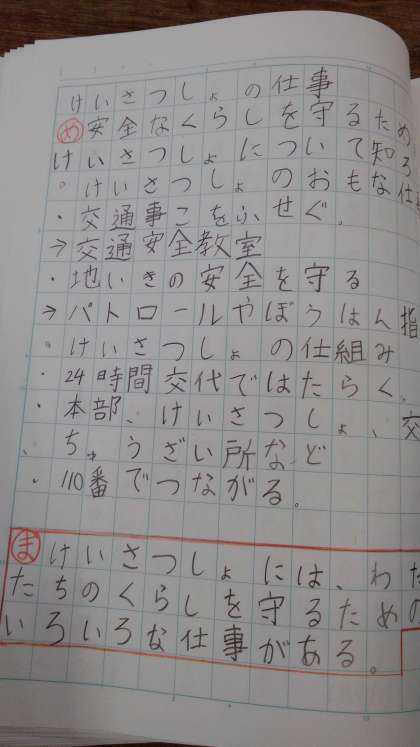 けいさつしょの仕事
め安全なくらしを守るため、
けいさつしょについて知ろ
。けいさつしょのおもな仕事
・交通事こをふせぐ。
→交通安全教室
・地いきの安全を守る
→パトロールやぼうはん指
。けいさつしょの仕組み
・24時間交代ではたらく。
・本部、けいさつしょ、交
、ちゅうざい所など
・110番でつながる。
まけいさつしょには、わた
たちのくらしを守るための
いろいろな仕事がある。